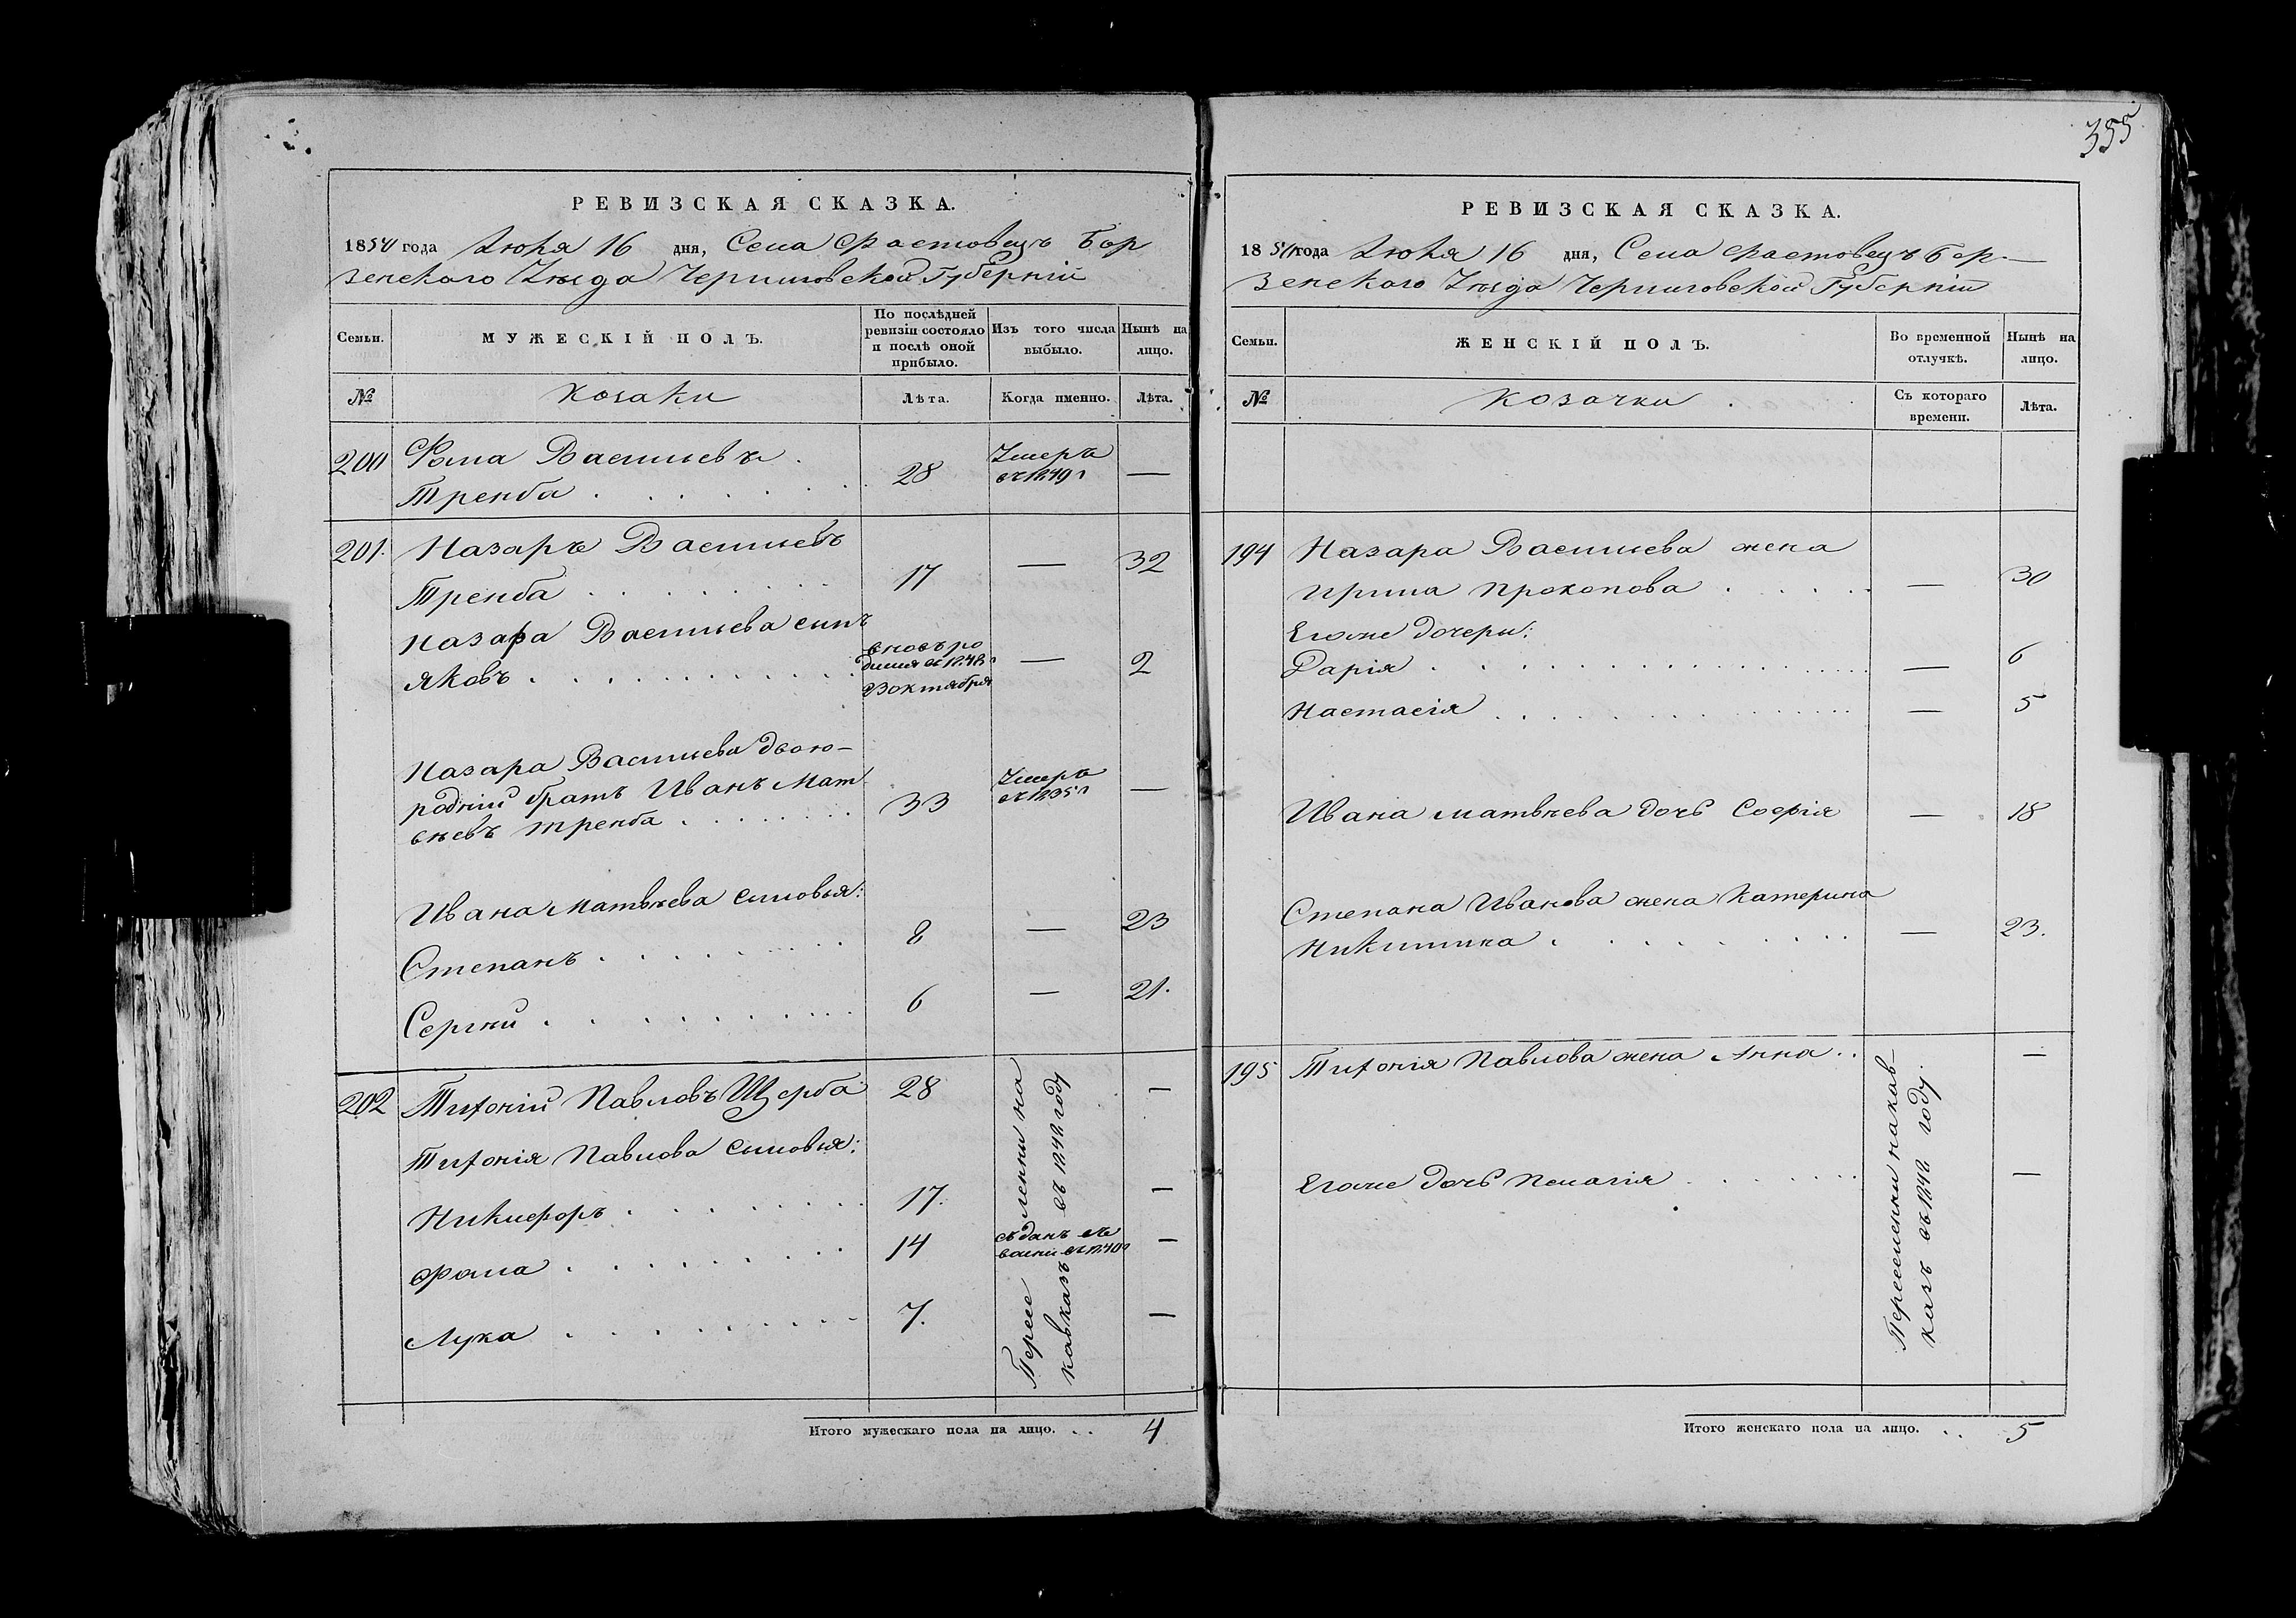 355
РЕВИЗСКАЯ СКАЗКА.
1850 года Июня 16 дня, Села Фастовецъ Бор
зенскаго Уѣзда Черниговской Губерніи
Семьи.
МУЖЕСКІЙ ПОЛЪ.
По послѣдней ревизіи состояло и послѣ оной прибыло.
Изъ того числа выбыло.
Нынѣ на лицо.
№ Козаки Лѣта. Когда именно. Лѣта.
200 Фома Васильевъ Умеръ
Тренба 28 въ 1849 г —
201. Назаръ Васильевъ
Тренба 17 — 32
Назара Васильева сынъ
Яковъ — 2
вновь ро
3 октября
Назара Васильева двою-
родній братъ Иванъ Мат
вѣевъ Тренба 33 Умеръ въ 1835 г —
Ивана Матвѣева сыновья:
Степанъ 8 — 23
Сергѣй 6 — 21.
202 Тихоній Павловъ Щерба 28 —
Тихонія Павлова сыновья:
Никифоръ 17. —
Фома 14 —
Лука 7. —
Пересе ленны на
кавказъ въ 1848 году
Итого мужескаго пола на лицо. 4
РЕВИЗСКАЯ СКАЗКА.
1850 года Июня 16 дня, Села Фастовецъ Бор-
зенскаго Уѣзда Черниговской Губерніи
Семьи.
ЖЕНСКІЙ ПОЛЪ.
Во временной отлучкѣ.
Нынѣ на лицо.
№ Козачки Съ котораго времени. Лѣта.
194 Назара Васильева жена
Ирина Прокопова — 30
Егоже дочери:
Дарія — 6
Настасія — 5
Ивана Матвѣева дочь Софія — 18
Степана Иванова жена Катерина
Никитина — 23.
195 Тихонія Павлова жена Анна —
Егоже дочь Пелагія —
Переселенны на кав-
казъ въ 1848 году.
Итого женскаго пола на лицо. 5